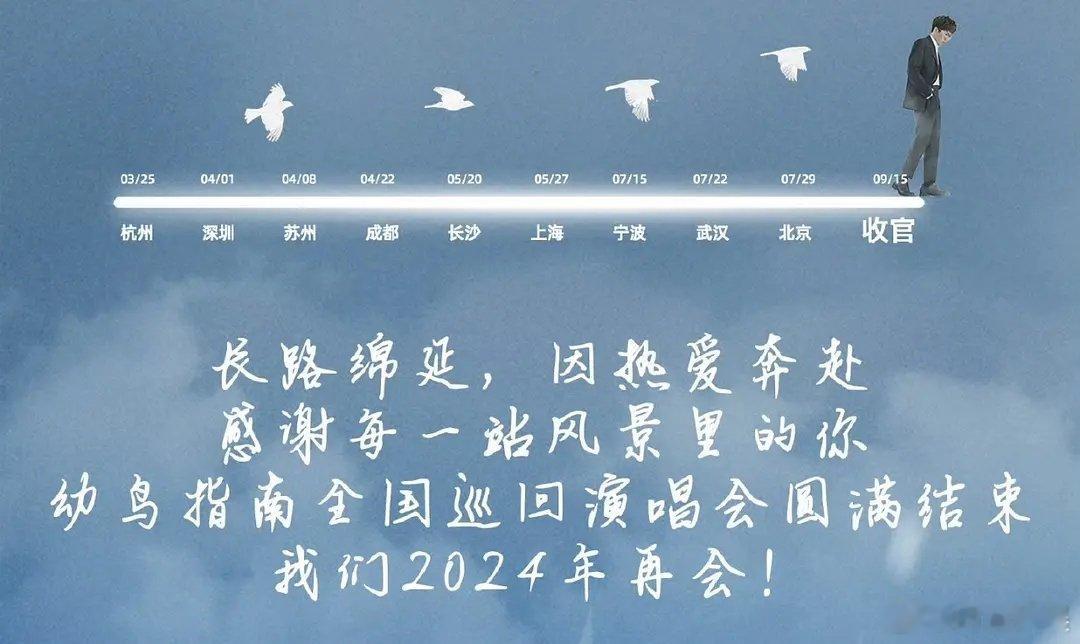 03/25 04/01 04/08 04/22 05/20 05/27 07/15 07/22 07/29 09/15
杭州 深圳 苏州 成都 长沙 上海 宁波 武汉 北京 收官
长路绵延，因热爱奔赴
感谢每一站风景里的你
幼鸟指南全国巡回演唱会圆满结束
我们2024年再会！